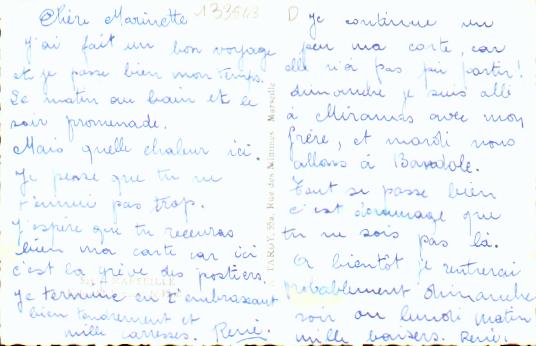 Chère Marinette
138543
J'ai fait un bon voyage
et je passe bien mon temps.
Le matin au bain et le
soir promenade.
Mais quelle chaleur ici.
Je pense que tu ne
t'ennui pas trop.
J'espère que tu recevras
bien ma carte car ici
c'est la grève des postiers.
Je termine en t'embrassant
bien tendrement et
mille caresses. René.
TARDY, 35a, Rue des Minimes Marseille
MARSEILLE
D Je continue un
peu ma carte, car
elle n'a pas pu partir!
dimanche je suis allé
à Miramas avec mon
frère, et mardi nous
allons à
Tout se passe bien
c'est dommage que
tu ne sois pas là.
A bientôt je rentrerai
probablement dimanche
soir ou lundi matin
mille baisers. René.